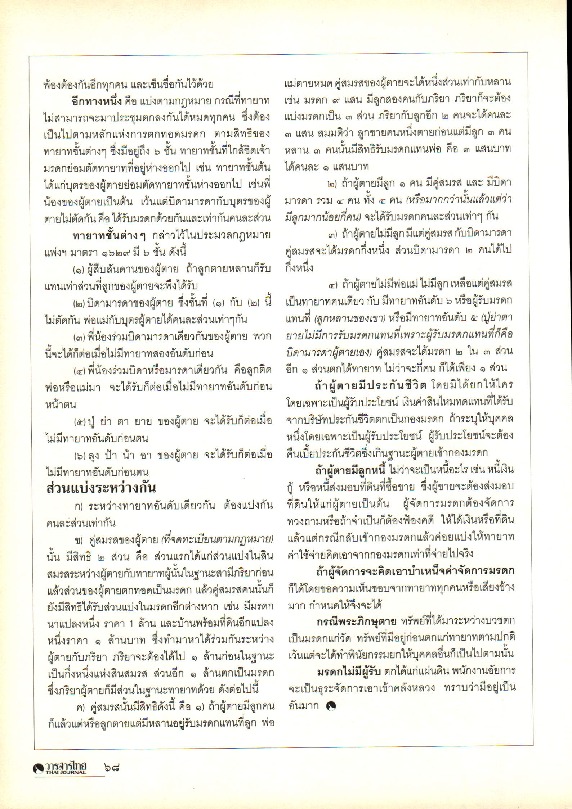 พ้องต้องกันอีกทุกคน และเซ็นชื่อกันไว้ด้วย
อีกทางหนึ่ง คือ แบ่งตามกฎหมาย กรณีที่ทายาท
ไม่สามารถจะมาประชุมตกลงกันได้หมดทุกคน ซึ่งต้อง
เป็นไปตามหลักแห่งการตกทอดมรดก ตามสิทธิของ
ทายาทชั้นต่างๆ ซึ่งมีอยู่ถึง ๖ ชั้น ทายาทชั้นที่ใกล้ชิดเจ้า
มรดกย่อมตัดทายาทที่อยู่ห่างออกไป เช่น ทายาทชั้นต้น
ได้แก่บุตรของผู้ตายย่อมตัดทายาทชั้นห่างออกไป เช่นพี่
น้องของผู้ตายเป็นต้น เว้นแต่บิดามารดากับบุตรของผู้
ตายไม่ตัดกัน คือ ได้รับมรดกด้วยกันและเท่ากันคนละส่วน
ทายาทชั้นต่าง ๆ กล่าวไว้ในประมวลกฎหมาย
แพ่งฯ มาตรา ๑๖๒๙ มี ๖ ชั้น ดังนี้
(๑) ผู้สืบสันดานของผู้ตาย ถ้าลูกตายหลานก็รับ
แทนเท่าส่วนที่ลูกของผู้ตายจะพึงได้รับ
(๒) บิดามารดาของผู้ตาย ซึ่งชั้นที่ (๑) กับ (๒) นี้
ไม่ตัดกัน พ่อแม่กับบุตรผู้ตายได้คนละส่วนเท่าๆกัน
(๓) พี่น้องร่วมบิดามารดาเดียวกันของผู้ตาย พวก
นี้จะได้ก็ต่อเมื่อไม่มีทายาทสองอันดับก่อน
(๔) พี่น้องร่วมบิดาหรือมารดาเดียวกัน คือลูกติด
พ่อหรือแม่มา จะได้รับก็ต่อเมื่อไม่มีทายาทอันดับก่อน
หน้าตน
(๕) ปู่ ย่า ตา ยาย ของผู้ตาย จะได้รับก็ต่อเมื่อ
ไม่มีทายาทอันดับก่อนตน
(๖) ลุง ป้า น้า อา ของผู้ตาย จะได้รับก็ต่อเมื่อ
ไม่มีทายาทอันดับก่อนตน
ส่วนแบ่งระหว่างกัน
ก) ระหว่างทายาทอันดับเดียวกัน ต้องแบ่งกัน
คนละส่วนเท่ากัน
ข) คู่สมรสของผู้ตาย (ที่จดทะเบียนตามกฎหมาย)
นั้น มีสิทธิ ๒ ส่วน คือ ส่วนแรกได้แก่ส่วนแบ่งในสิน
สมรสระหว่างผู้ตายกับทายาทผู้นั้นในฐานะสามีภริยาก่อน
แล้วส่วนของผู้ตายตกทอดเป็นมรดก แล้วคู่สมรสคนนั้นก็
ยังมีสิทธิได้รับส่วนแบ่งในมรดกอีกต่างหาก เช่น มีมรดก
นาแปลงหนึ่ง ราคา 1 ล้าน และบ้านพร้อมที่ดินอีกแปลง
หนึ่งราคา ๑ ล้านบาท ซึ่งทำมาหาได้ร่วมกันระหว่าง
ผู้ตายกับภริยา ภริยาจะต้องได้ไป ๑ ล้านก่อนในฐานะ
เป็นกึ่งหนึ่งแห่งสินสมรส ส่วนอีก ๑ ล้านตกเป็นมรดก
ซึ่งภริยาผู้ตายก็มีส่วนในฐานะทายาทด้วย ดังต่อไปนี้
ค) คู่สมรสนั้นมีสิทธิดังนี้ คือ ๑) ถ้าผู้ตายมีลูกคน
ก็แล้วแต่หรือลูกตายแต่มีหลานอยู่รับมรดกแทนที่ลูก พ่อ
แม่ตายหมด คู่สมรสของผู้ตายจะได้หนึ่งส่วนเท่ากับหลาน
เช่น มรดก ๙ แสน มีลูกสองคนกับภริยา ภริยาก็จะต้อง
แบ่งมรดกเป็น ๓ ส่วน ภริยากับลูกอีก ๒ คนจะได้คนละ
๓ แสน สมมติว่า ลูกชายคนหนึ่งตายก่อนแต่มีลูก ๓ คน
หลาน ๓ คนนั้นมีสิทธิรับมรดกแทนพ่อ คือ ๓ แสนบาท
ได้คนละ ๑ แสนบาท
๒) ถ้าผู้ตายมีลูก ๑ คน มีคู่สมรส และ มีบิดา
มารดา รวม ๔ คน ทั้ง ๔ คน (หรือมากกว่านั้นแล้วแต่ว่า
มีลูกมากน้อยกี่คน) จะได้รับมรดกคนละส่วนเท่าๆ กัน
๓) ถ้าผู้ตายไม่มีลูก มีแต่คู่สมรส กับบิดามารดา
คู่สมรสจะได้มรดกกึ่งหนึ่ง ส่วนบิดามารดา ๒ คนได้ไป
กึ่งหนึ่ง
๔) ถ้าผู้ตายไม่มีพ่อแม่ ไม่มีลูก เหลือแต่คู่สมรส
เป็นทายาทคนเดียว กับ มีทายาทอันดับ ๖ หรือผู้รับมรดก
แทนที่ (ลูกหลานของเขา) หรือมีทายาทอันดับ ๕ (ปู่ย่าตา
ยายไม่มีการรับมรดกแทนที่เพราะผู้รับมรดกแทนที่ก็คือ
บิดามารดาผู้ตายเอง) คู่สมรสจะได้มรดก ๒ ใน ๓ ส่วน
อีก ๑ ส่วนตกได้ทายาท ไม่ว่าจะกี่คน ก็ได้เพียง ๑ ส่วน
ถ้าผู้ตายมีประกันชีวิต โดยมิได้ยกให้ใคร
โดยเฉพาะเป็นผู้รับประโยชน์ เงินค่าสินไหมทดแทนที่ได้รับ
จากบริษัทประกันชีวิตตกเป็นกองมรดก ถ้าระบุให้บุคคล
หนึ่งโดยเฉพาะเป็นผู้รับประโยชน์ ผู้รับประโยชน์จะต้อง
คืนเบี้ยประกันชีวิตซึ่งเกินฐานะผู้ตายเข้ากองมรดก
ถ้าผู้ตายมีลูกหนี้ ไม่ว่าจะเป็นหนี้อะไร เช่น หนี้เงิน
กู้ หรือหนี้ส่งมอบที่ดินที่ซื้อขาย ซึ่งผู้ขายจะต้องส่งมอบ
ที่ดินให้แก่ผู้ตายเป็นต้น ผู้จัดการมรดกต้องจัดการ
ทวงถามหรือถ้าจำเป็นก็ต้องฟ้องคดี ให้ได้เงินหรือที่ดิน
แล้วแต่กรณีกลับเข้ากองมรดกแล้วค่อยแบ่งให้ทายาท
ค่าใช้จ่ายคิดเอาจากกองมรดกเท่าที่จ่ายไปจริง
ถ้าผู้จัดการจะคิดเอาบำเหน็จค่าจัดการมรดก
ก็ได้โดยขอความเห็นชอบจากทายาททุกคนหรือเสียงข้าง
มาก กำหนดให้จึงจะได้
กรณีพระภิกษุตาย ทรัพย์ที่ได้มาระหว่างบวชตก
เป็นมรดกแก่วัด ทรัพย์ที่มีอยู่ก่อนตกแก่ทายาทตามปกติ
เว้นแต่จะได้ทำพินัยกรรมยกให้บุคคลอื่นก็เป็นไปตามนั้น
มรดกไม่มีผู้รับ ตกได้แก่แผ่นดิน พนักงานอัยการ
จะเป็นธุระจัดการเอาเข้าคลังหลวง ทราบว่ามีอยู่เป็น
อันมาก
วารสารไทย ๖๘
THAI JOURNAL